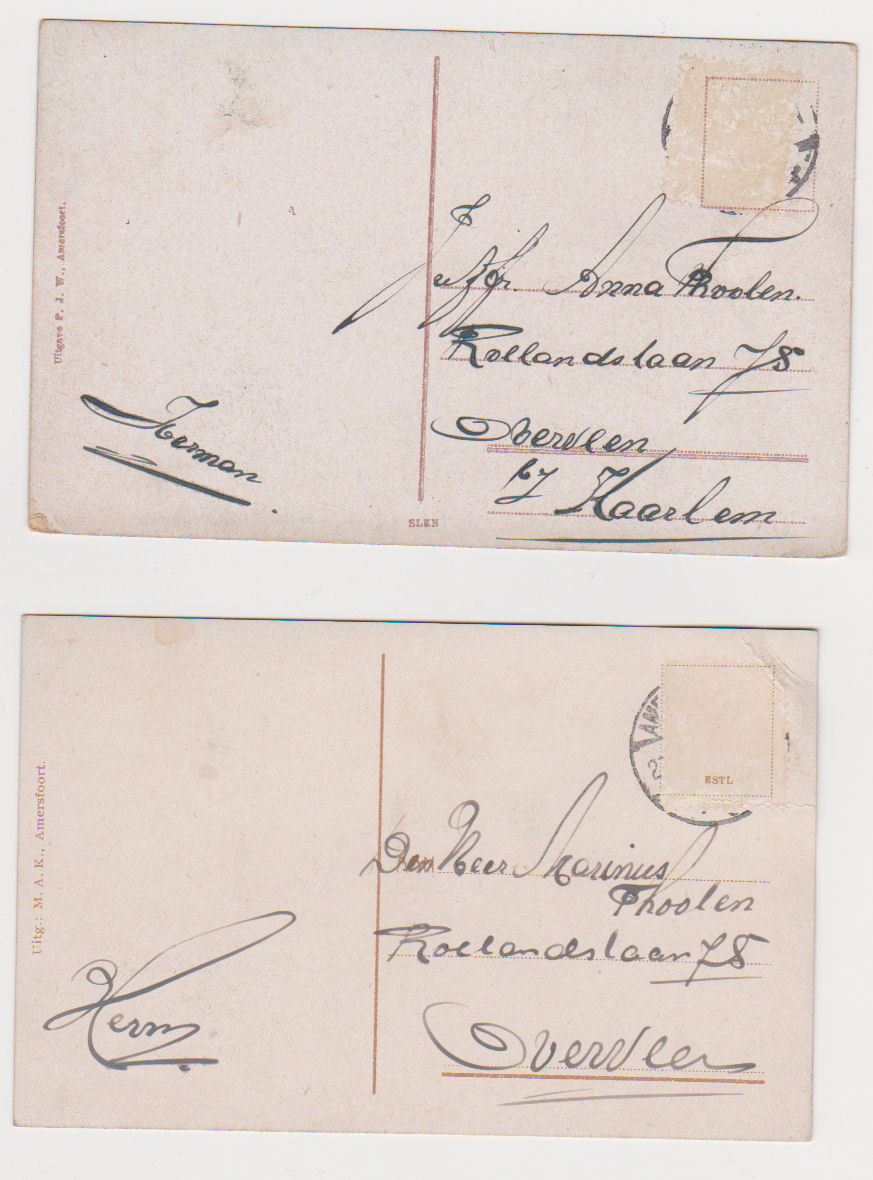 Uitgave P. J. W., Amersfoort.
Juffr. Anna Thoolen.
Roelandslaan 78
Overveen
bij Haarlem
Herman
SLEN
Uitg.: M. A. K., Amersfoort.
ESTL
Den Heer Marinus
Thoolen
Roelandslaan 78
Overveen
Herm